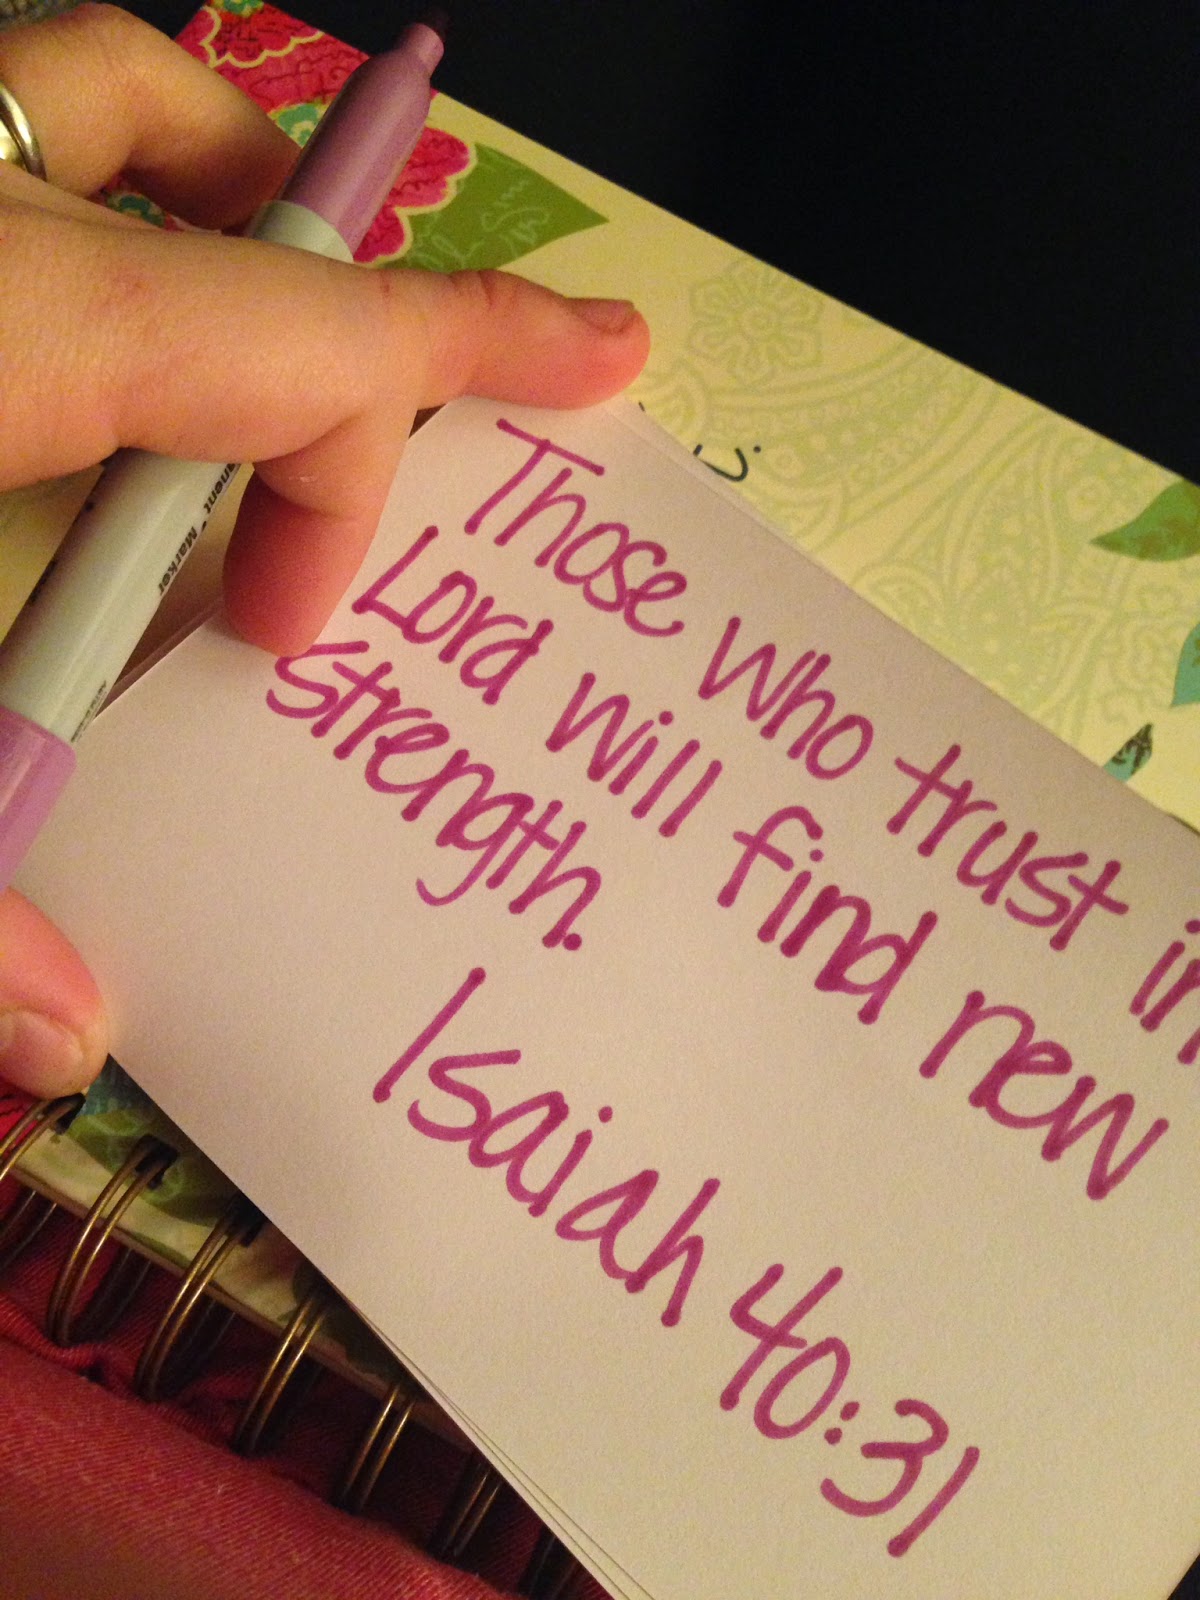 Those who trust in
Lord will find new
strength.
Isaiah 40:31
anent Marker